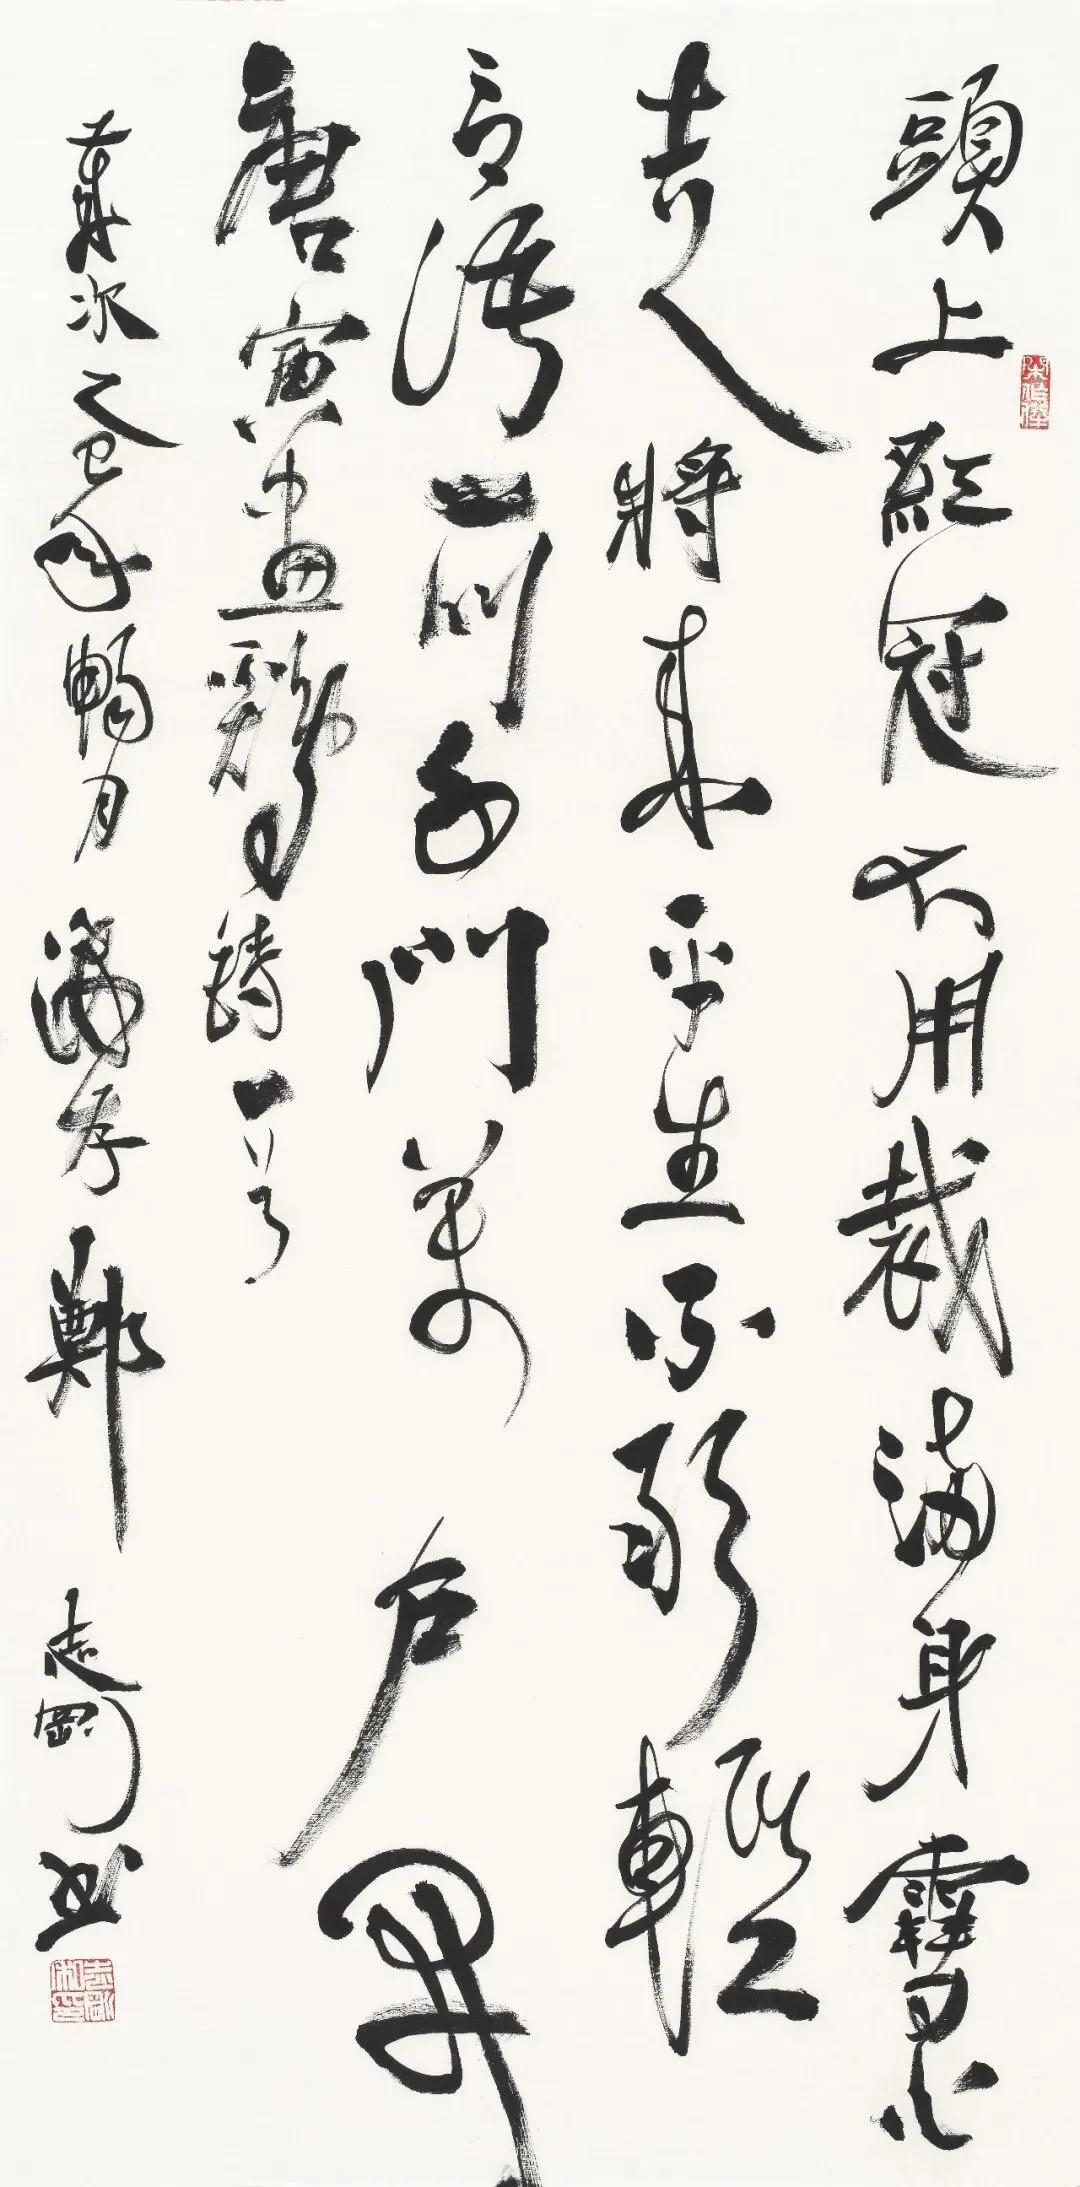 頭上紅冠不用裁滿身雪白
走將來平生不敢輕
言語一叫千門萬戶開
唐寅畫雞詩一首
歲次乙巳年暢月鄭志剛書